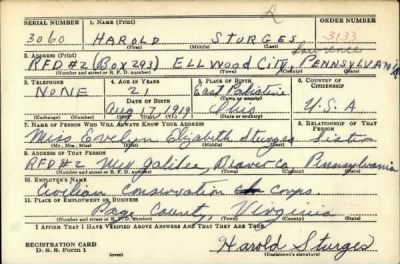 2
SERIAL NUMBER 1. NAME (Print) ORDER NUMBER
3060 HAROLD STURGES 3133
(First) (Middle) (Last)
2. ADDRESS (Print) Lawrence
RFD #2 (Box 293) ELLWOOD CITY, PENNSYLVANIA
(Number and street or R. F. D. number) (Town) (County) (State)
3. TELEPHONE 4. AGE IN YEARS 5. PLACE OF BIRTH 6. COUNTRY OF CITIZENSHIP
NONE 21 East Palestine
DATE OF BIRTH (Town or county)
Aug 17, 1919 Ohio U.S.A
(Exchange) (Number) (Mo.) (Day) (Yr.) (State or country)
7. NAME OF PERSON WHO WILL ALWAYS KNOW YOUR ADDRESS 8. RELATIONSHIP OF THAT PERSON
Miss Evelyn Elizabeth Sturges Sister
(Mr., Mrs., Miss) (First) (Middle) (Last)
9. ADDRESS OF THAT PERSON
RFD #2 New Galilee, Beaver Co, Pennsylvania
(Number and street or R. F. D. number) (Town) (County) (State)
10. EMPLOYER'S NAME
Civilian Conservation Corps.
11. PLACE OF EMPLOYMENT OR BUSINESS
Page County, Virginia
(Number and street or R. F. D. number) (Town) (County) (State)
I AFFIRM THAT I HAVE VERIFIED ABOVE ANSWERS AND THAT THEY ARE TRUE.
REGISTRATION CARD Harold Sturges
D. S. S. Form 1 (Registrant's signature)